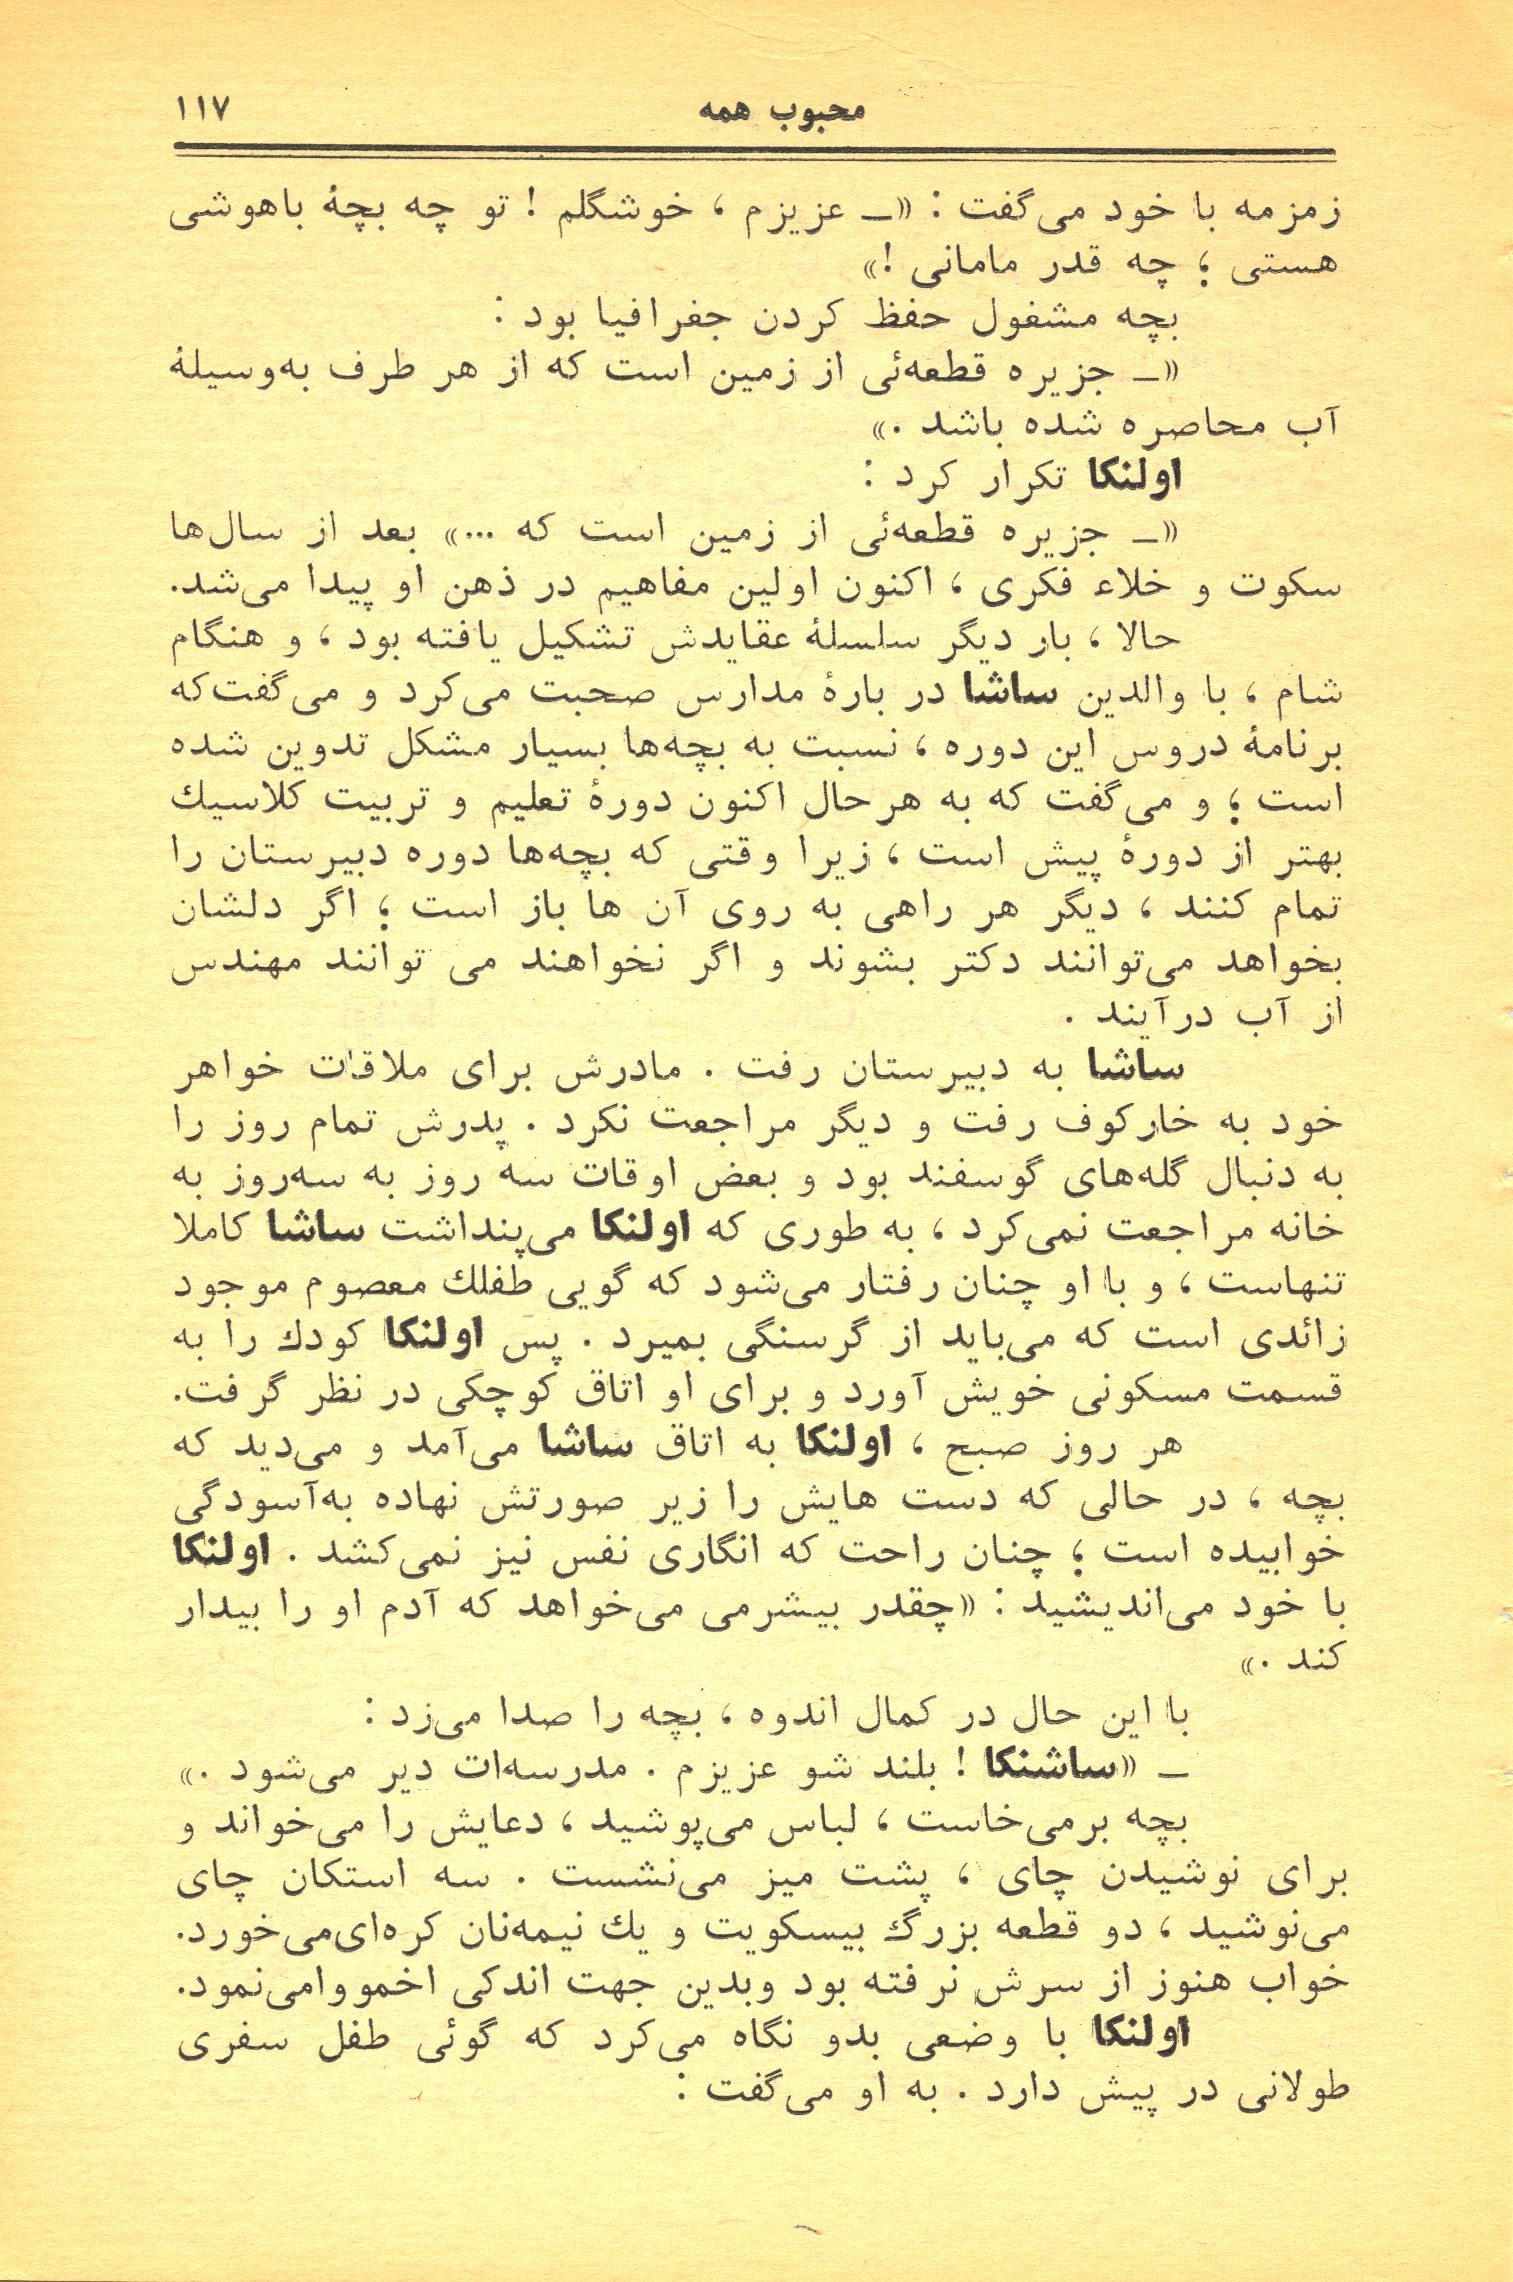 محبوب همه
۱۱۷
زمزمه با خود می‌گفت : «ـ عزیزم ، خوشگلم ! تو چه بچهٔ باهوشی
هستی ؛ چه قدر مامانی !»
بچه مشغول حفظ کردن جغرافیا بود :
«ـ جزیره قطعه‌ئی از زمین است که از هر طرف به‌وسیلهٔ
آب محاصره شده باشد .»
اولنکا تکرار کرد :
«ـ جزیره قطعه‌ئی از زمین است که ...» بعد از سال‌ها
سکوت و خلاء فکری ، اکنون اولین مفاهیم در ذهن او پیدا می‌شد.
حالا ، بار دیگر سلسلهٔ عقایدش تشکیل یافته بود ، و هنگام
شام ، با والدین ساشا در بارهٔ مدارس صحبت می‌کرد و می‌گفت‌که
برنامهٔ دروس این دوره ، نسبت به بچه‌ها بسیار مشکل تدوین شده
است ؛ و می‌گفت که به هرحال اکنون دورهٔ تعلیم و تربیت کلاسیك
بهتر از دورهٔ پیش است ، زیرا وقتی که بچه‌ها دوره دبیرستان را
تمام کنند ، دیگر هر راهی به روی آن ها باز است ؛ اگر دلشان
بخواهد می‌توانند دکتر بشوند و اگر نخواهند می توانند مهندس
از آب درآیند .
ساشا به دبیرستان رفت . مادرش برای ملاقات خواهر
خود به خارکوف رفت و دیگر مراجعت نکرد . پدرش تمام روز را
به دنبال گله‌های گوسفند بود و بعض اوقات سه روز به سه‌روز به
خانه مراجعت نمی‌کرد ، به طوری که اولنکا می‌پنداشت ساشا کاملا
تنهاست ، و با او چنان رفتار می‌شود که گویی طفلك معصوم موجود
زائدی است که می‌باید از گرسنگی بمیرد . پس اولنکا کودك را به
قسمت مسکونی خویش آورد و برای او اتاق کوچکی در نظر گرفت.
هر روز صبح ، اولنکا به اتاق ساشا می‌آمد و می‌دید که
بچه ، در حالی که دست هایش را زیر صورتش نهاده به‌آسودگی
خوابیده است ؛ چنان راحت که انگاری نفس نیز نمی‌کشد . اولنکا
با خود می‌اندیشید : «چقدر بیشرمی می‌خواهد که آدم او را بیدار
کند .»
با این حال در کمال اندوه ، بچه را صدا می‌زد :
ـ «ساشنکا ! بلند شو عزیزم . مدرسه‌ات دیر می‌شود .»
بچه برمی‌خاست ، لباس می‌پوشید ، دعایش را می‌خواند و
برای نوشیدن چای ، پشت میز می‌نشست . سه استکان چای
می‌نوشید ، دو قطعه بزرگ بیسکویت و یك نیمه‌نان کره‌ای‌می‌خورد.
خواب هنوز از سرش نرفته بود وبدین جهت اندکی اخمووامی‌نمود.
اولنکا با وضعی بدو نگاه می‌کرد که گوئی طفل سفری
طولانی در پیش دارد . به او می‌گفت :